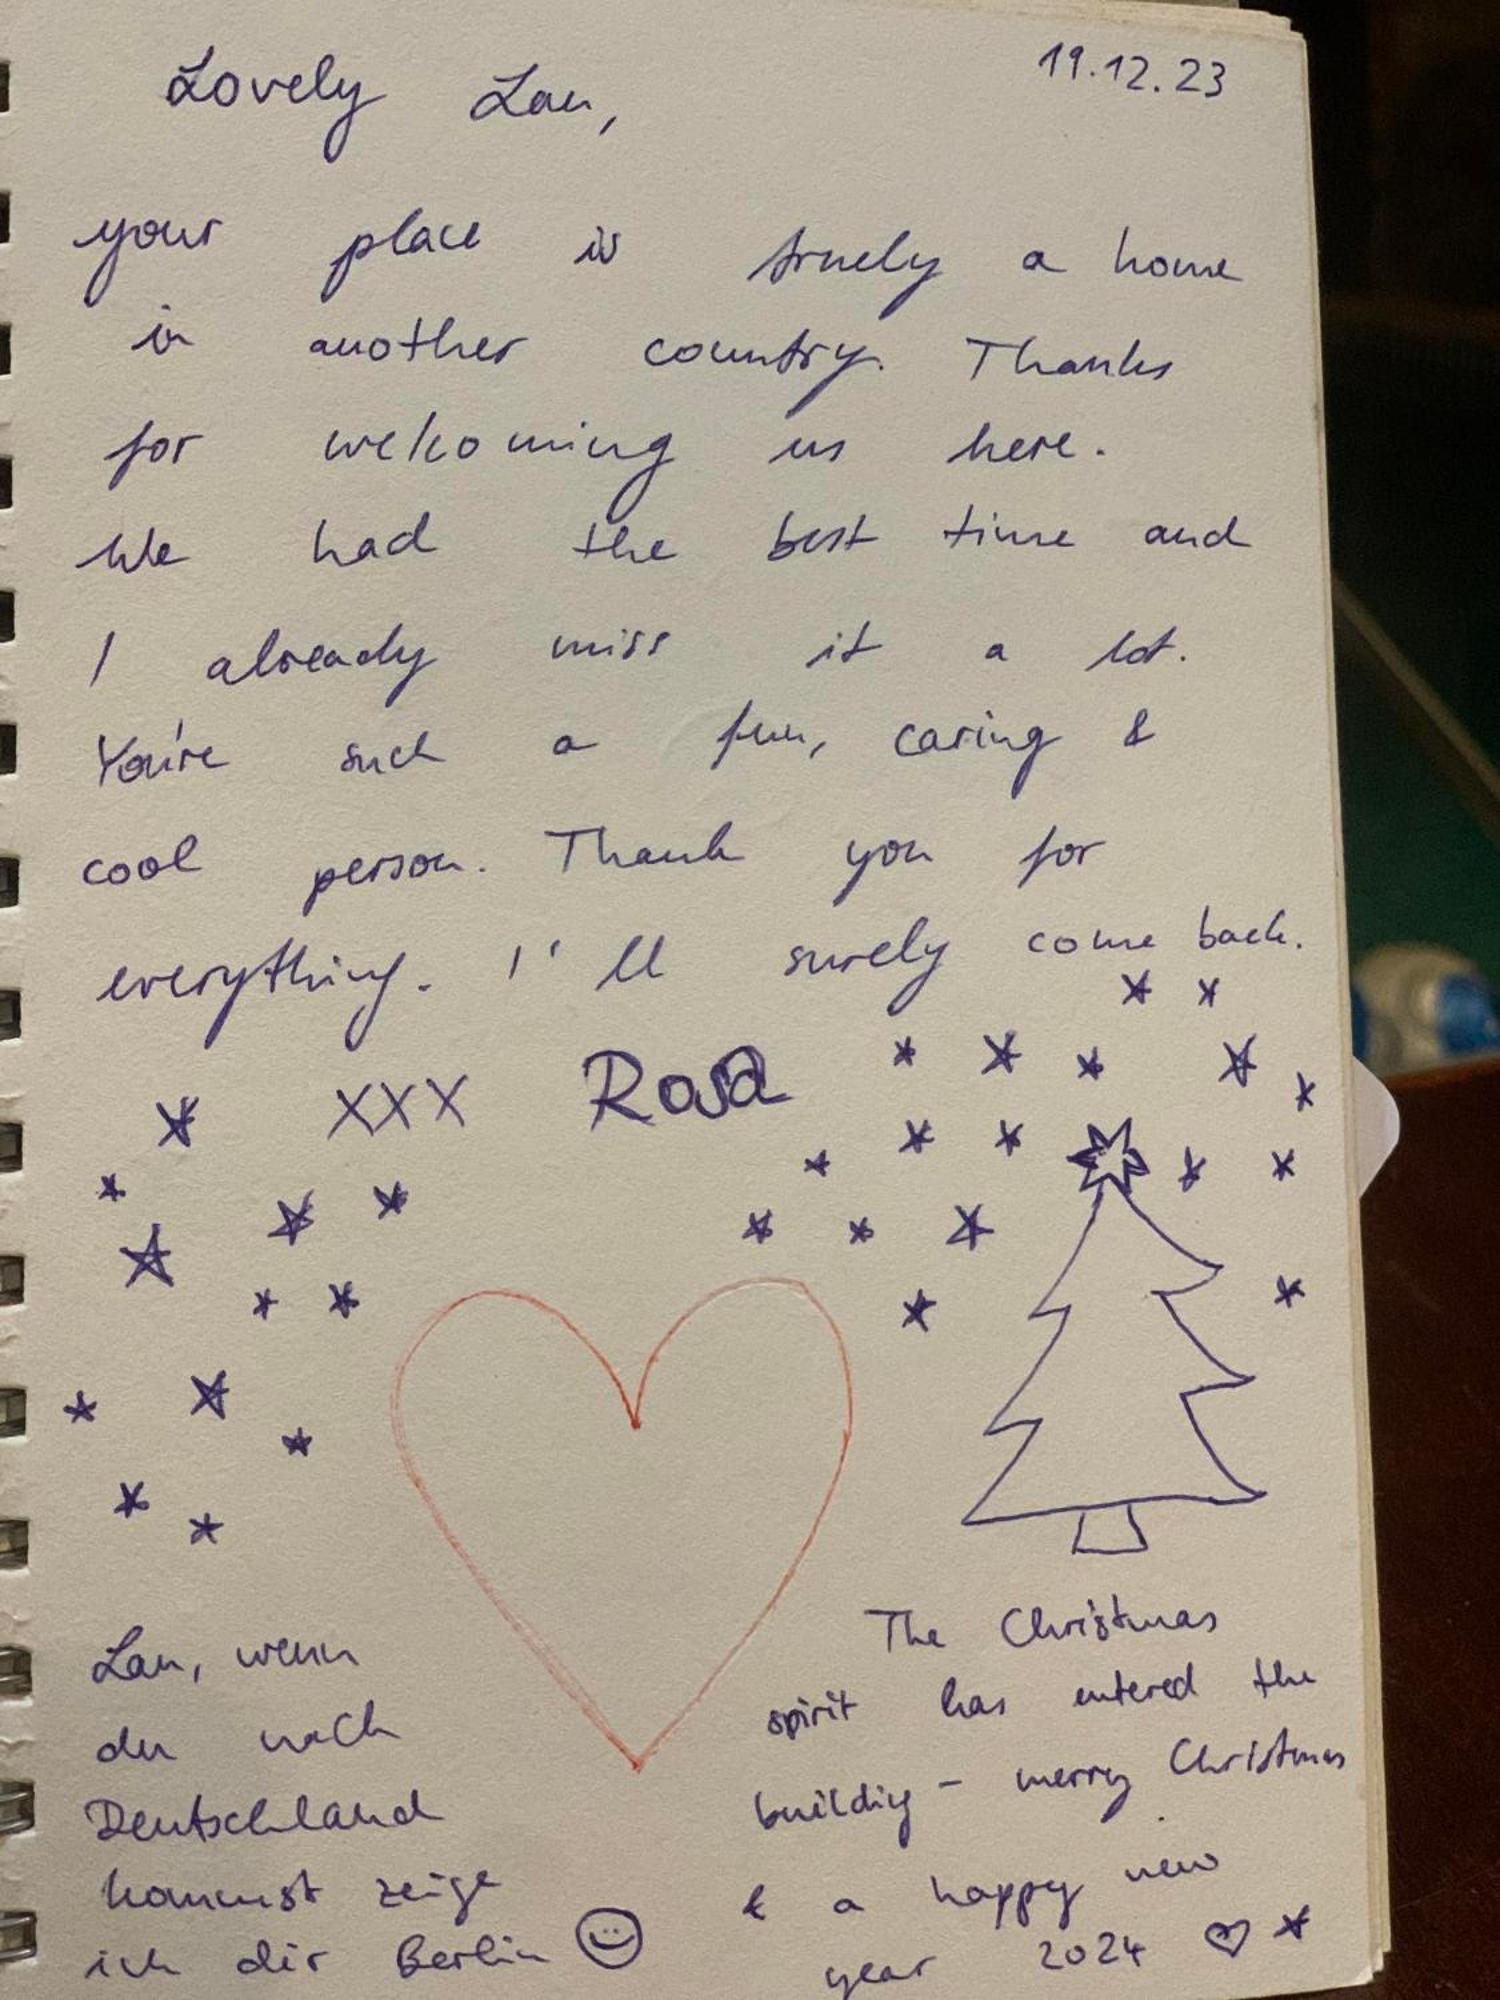 19.12.23
Lovely Lan,
your place is truely a home
in another country. Thanks
for welcoming us here.
We had the best time and
I already miss it a lot.
You're such a fun, caring &
cool person. Thank you for
everything. I'll surely come back.
XXX Rosa
The Christmas
spirit has entered the
building - merry Christmas
& a happy new
year 2024
Lan, wenn
du nach
Deutschland
kommst zeige
ich dir Berlin